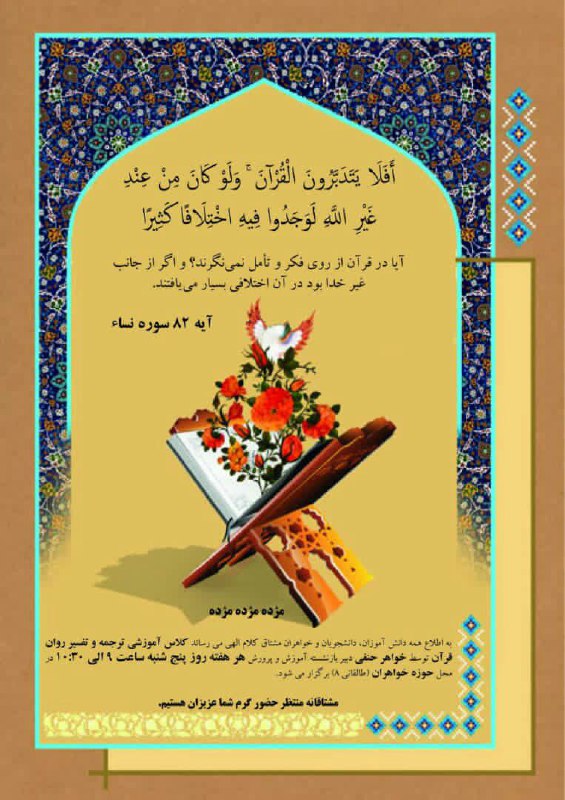 أَفَلَا يَتَدَبَّرُونَ الْقُرْآنَ ۚ وَلَوْ كَانَ مِنْ عِنْدِ
غَيْرِ اللَّهِ لَوَجَدُوا فِيهِ اخْتِلَافًا كَثِيرًا
آیا در قرآن از روی فکر و تأمل نمی‌نگرند؟ و اگر از جانب
غیر خدا بود در آن اختلافی بسیار می‌یافتند.
آیه ۸۲ سوره نساء
مژده مژده مژده
به اطلاع همه دانش آموزان، دانشجویان و خواهران مشتاق کلام الهی می رساند کلاس آموزشی ترجمه و تفسیر روان
قرآن توسط خواهر حنفی دبیر بازنشسته آموزش و پرورش هر هفته روز پنج شنبه ساعت ۹ الی ۱۰:۳۰ در
محل حوزه خواهران (طالقانی ۸) برگزار می شود.
مشتاقانه منتظر حضور گرم شما عزیزان هستیم.